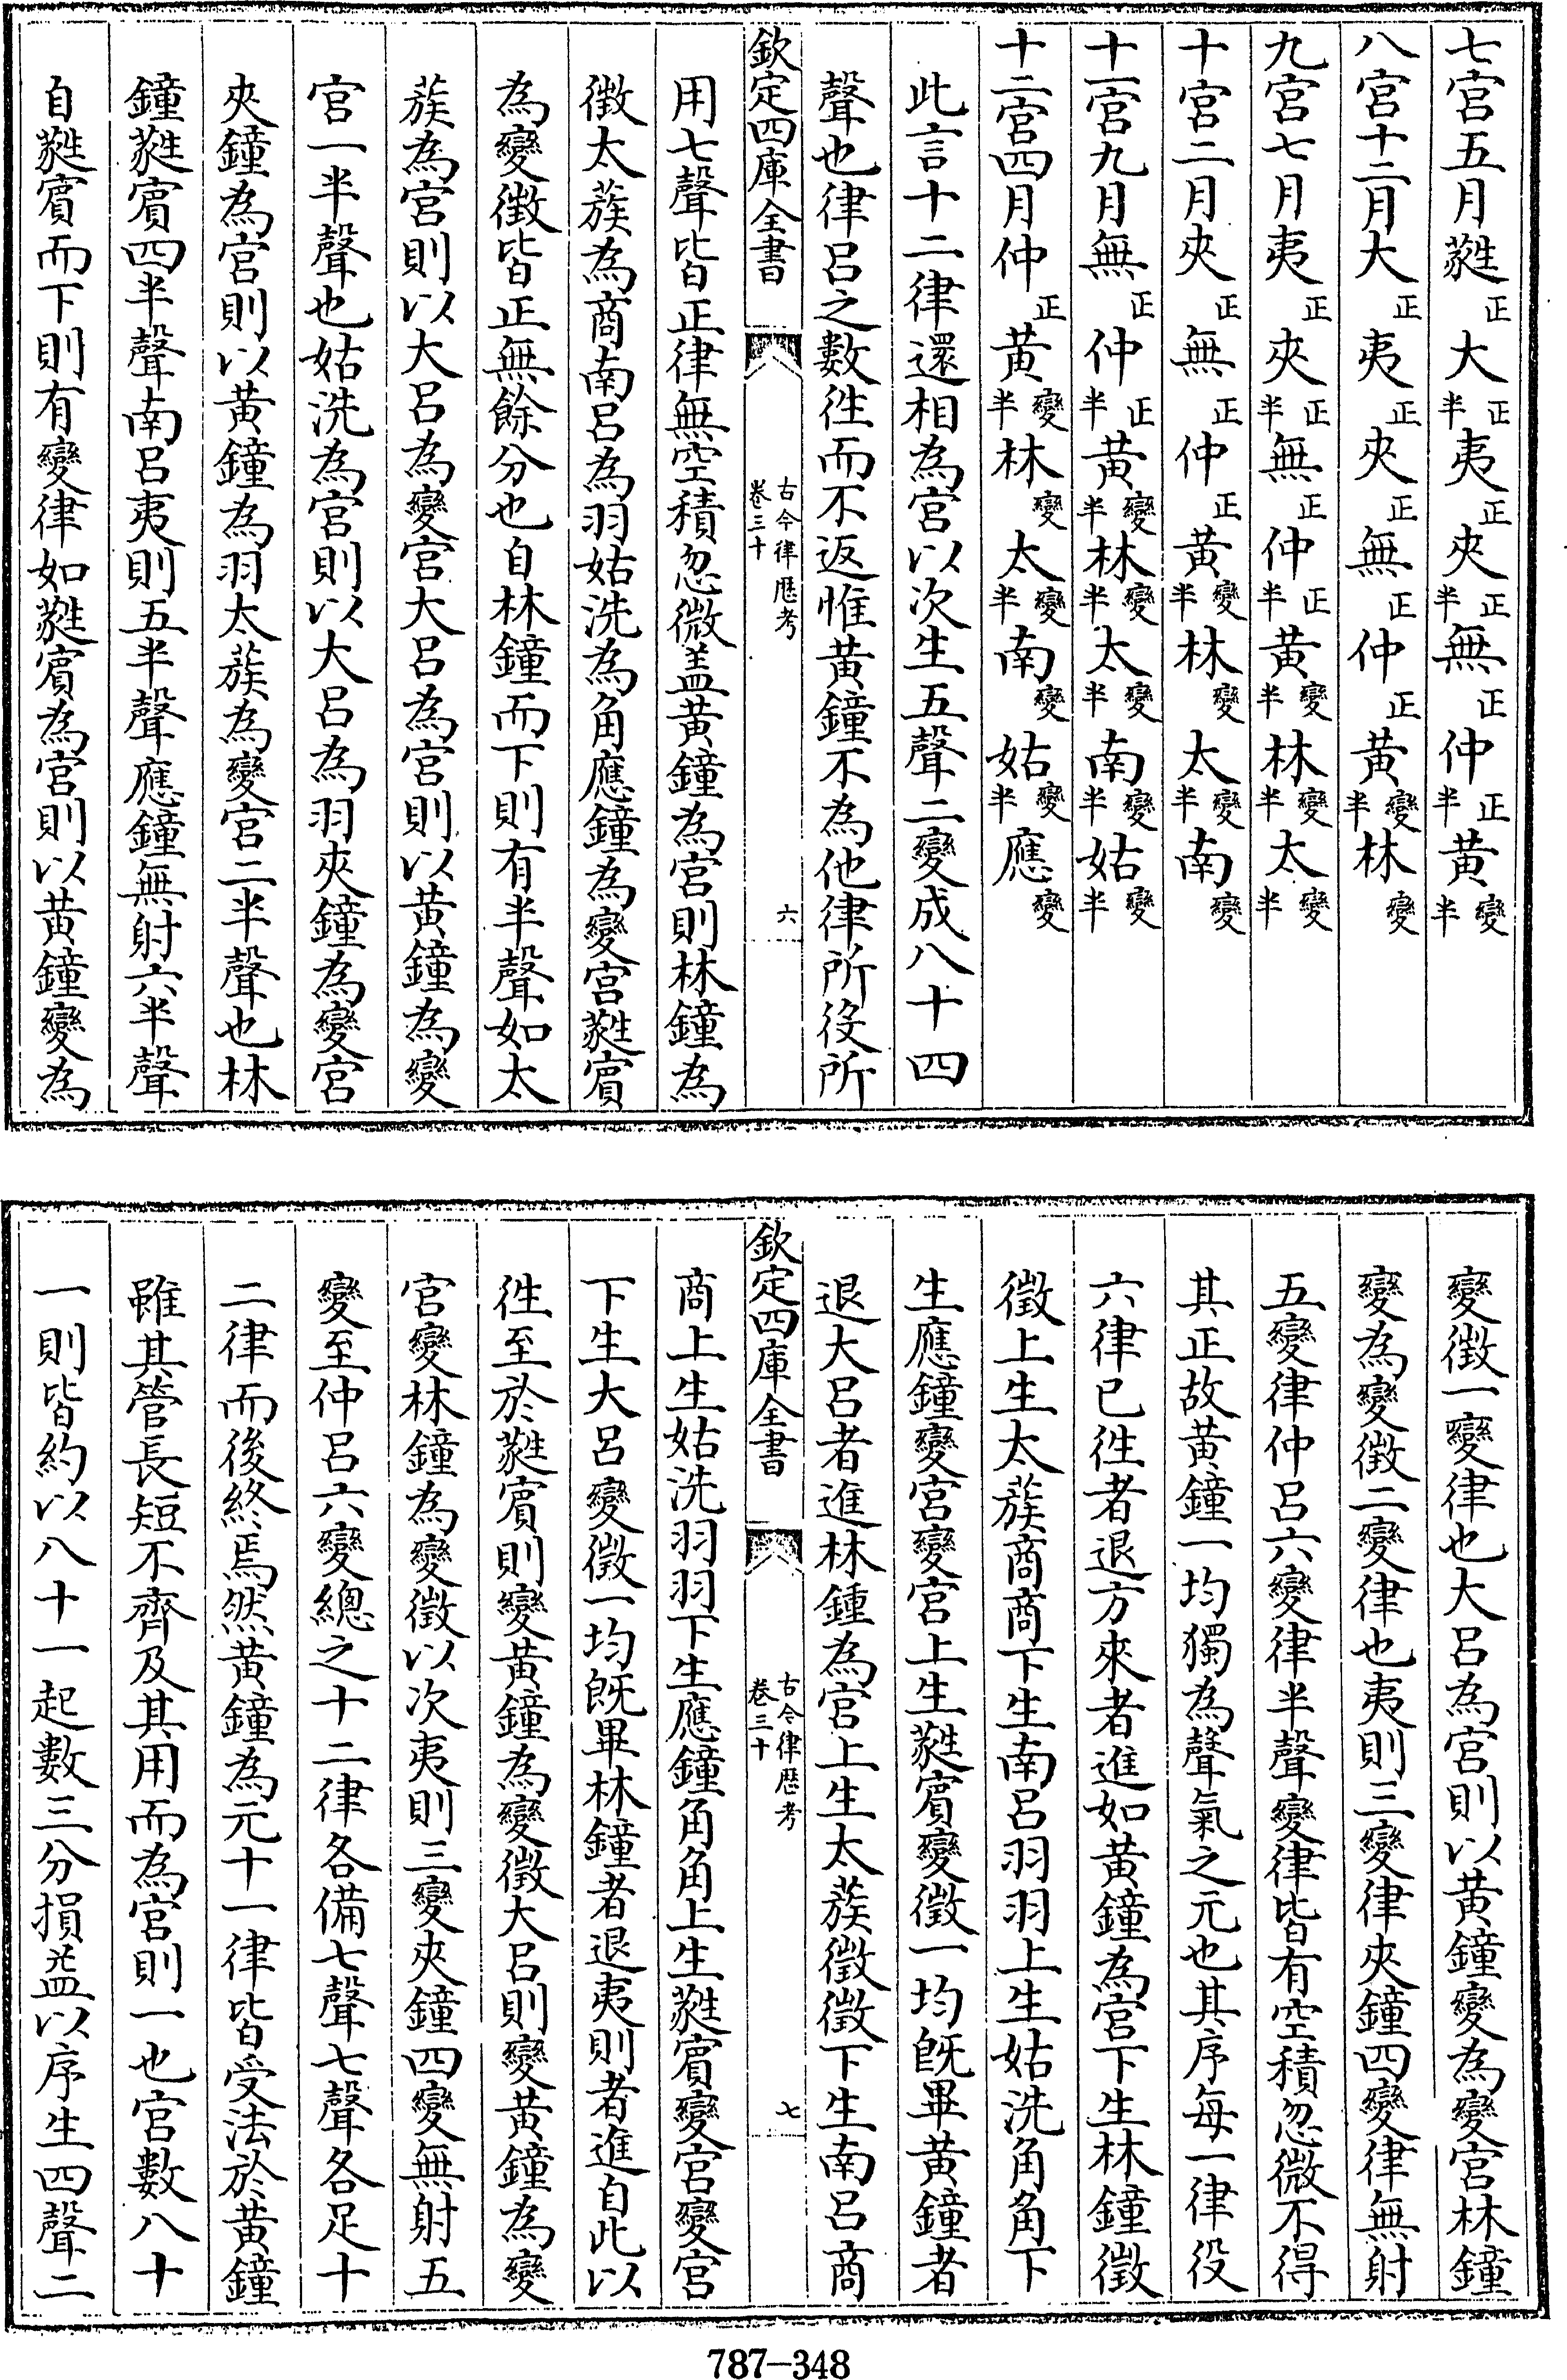 七宮五月蕤正大正半夷正夾正半無正仲正半黃變半
八宮十二月大正夷正夾正無正仲正黃變半林變
九宮七月夷正夾正半無正仲正半黃變半林變半太變半
十宮二月夾正無正仲正黃變半林變太變半南變
十一宮九月無正仲正半黃變半林變半太變半南變半姑變半
十二宮四月仲正黃變半林變太變半南變姑變半應變
此言十二律還相為宮以次生五聲二變成八十四
聲也律呂之數徃而不返惟黃鐘不為他律所役所
欽定四庫全書
古今律歷考
卷三十
六
用七聲皆正律無空積忽微盖黃鐘為宮則林鐘為
徵太蔟為商南呂為羽姑洗為角應鐘為變宮蕤賔
為變徵皆正無餘分也自林鐘而下則有半聲如太
蔟為宮則以大呂為變宮大呂為宮則以黃鐘為變
宮一半聲也姑洗為宮則以大呂為羽夾鐘為變宮
夾鐘為宮則以黃鐘為羽太蔟為變宮二半聲也林
鐘蕤賔四半聲南呂夷則五半聲應鐘無射六半聲
自蕤賔而下則有變律如蕤賔為宮則以黃鐘變為
變徵一變律也大呂為宮則以黃鐘變為變宮林鐘
變為變徵二變律也夷則三變律夾鐘四變律無射
五變律仲呂六變律半聲變律皆有空積忽微不得
其正故黃鐘一均獨為聲氣之元也其序每一律役
六律已徃者退方來者進如黃鐘為宮下生林鐘徵
徵上生太蔟商商下生南呂羽羽上生姑洗角角下
生應鐘變宮變宮上生蕤賔變徵一均旣畢黃鐘者
退大呂者進林鍾為宮上生太蔟徵徵下生南呂商
欽定四庫全書
古今律歷考
卷三十
七
商上生姑洗羽羽下生應鐘角角上生蕤賔變宮變宮
下生大呂變徵一均旣畢林鐘者退夷則者進自此以
徃至於蕤賔則變黃鐘為變徵大呂則變黃鐘為變
宮變林鐘為變徵以次夷則三變夾鐘四變無射五
變至仲呂六變總之十二律各備七聲七聲各足十
二律而後終焉然黃鐘為元十一律皆受法於黃鐘
雖其管長短不齊及其用而為宮則一也宮數八十
一則皆約以八十一起數三分損益以序生四聲二
787-348